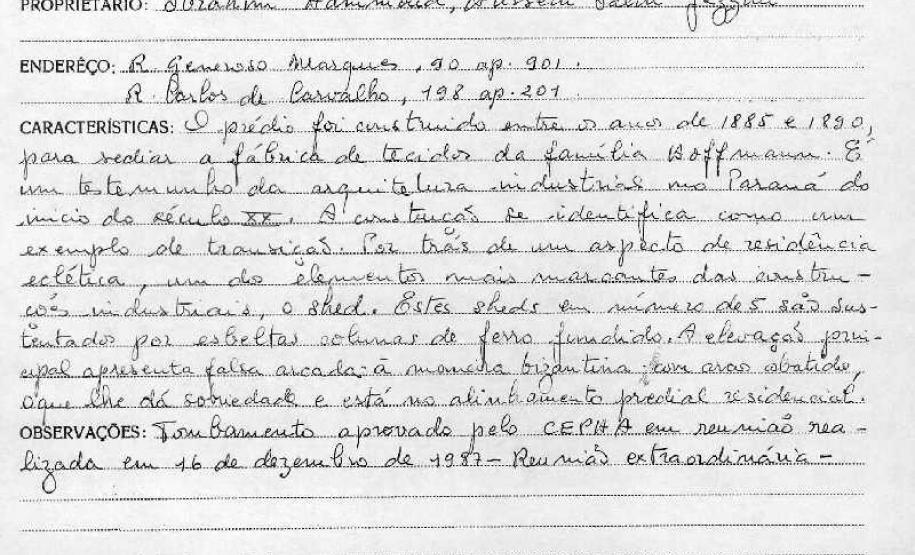 PROPRIETÁRIO:
ENDERÊÇO: R. Generoso Marques, 90 ap. 901.
R. Carlos de Carvalho, 198 ap. 201
CARACTERÍSTICAS: O prédio foi construido entre os anos de 1885 e 1890,
para sediar a fábrica de tecidos da família Hoffmann. É
um testemunho da arquitetura industrial no Paraná do
início do século XX. A construção se identifica como um
exemplo de transição. Por trás de um aspecto de residência
eclética, um do elementos mais marcantes das constru-
ções industriais, o shed. Estes sheds em número de 5 são sus-
tentados por esbeltas colunas de ferro fundido. A elevação prin-
cipal apresenta falsa arcada à maneira bizantina com arco abatido,
o que lhe dá sobriedade e está no alinhamento predial residencial.
OBSERVAÇÕES: Tombamento aprovado pelo CEPHA em reunião rea-
lizada em 16 de dezembro de 1987 - Reunião extraordinária -